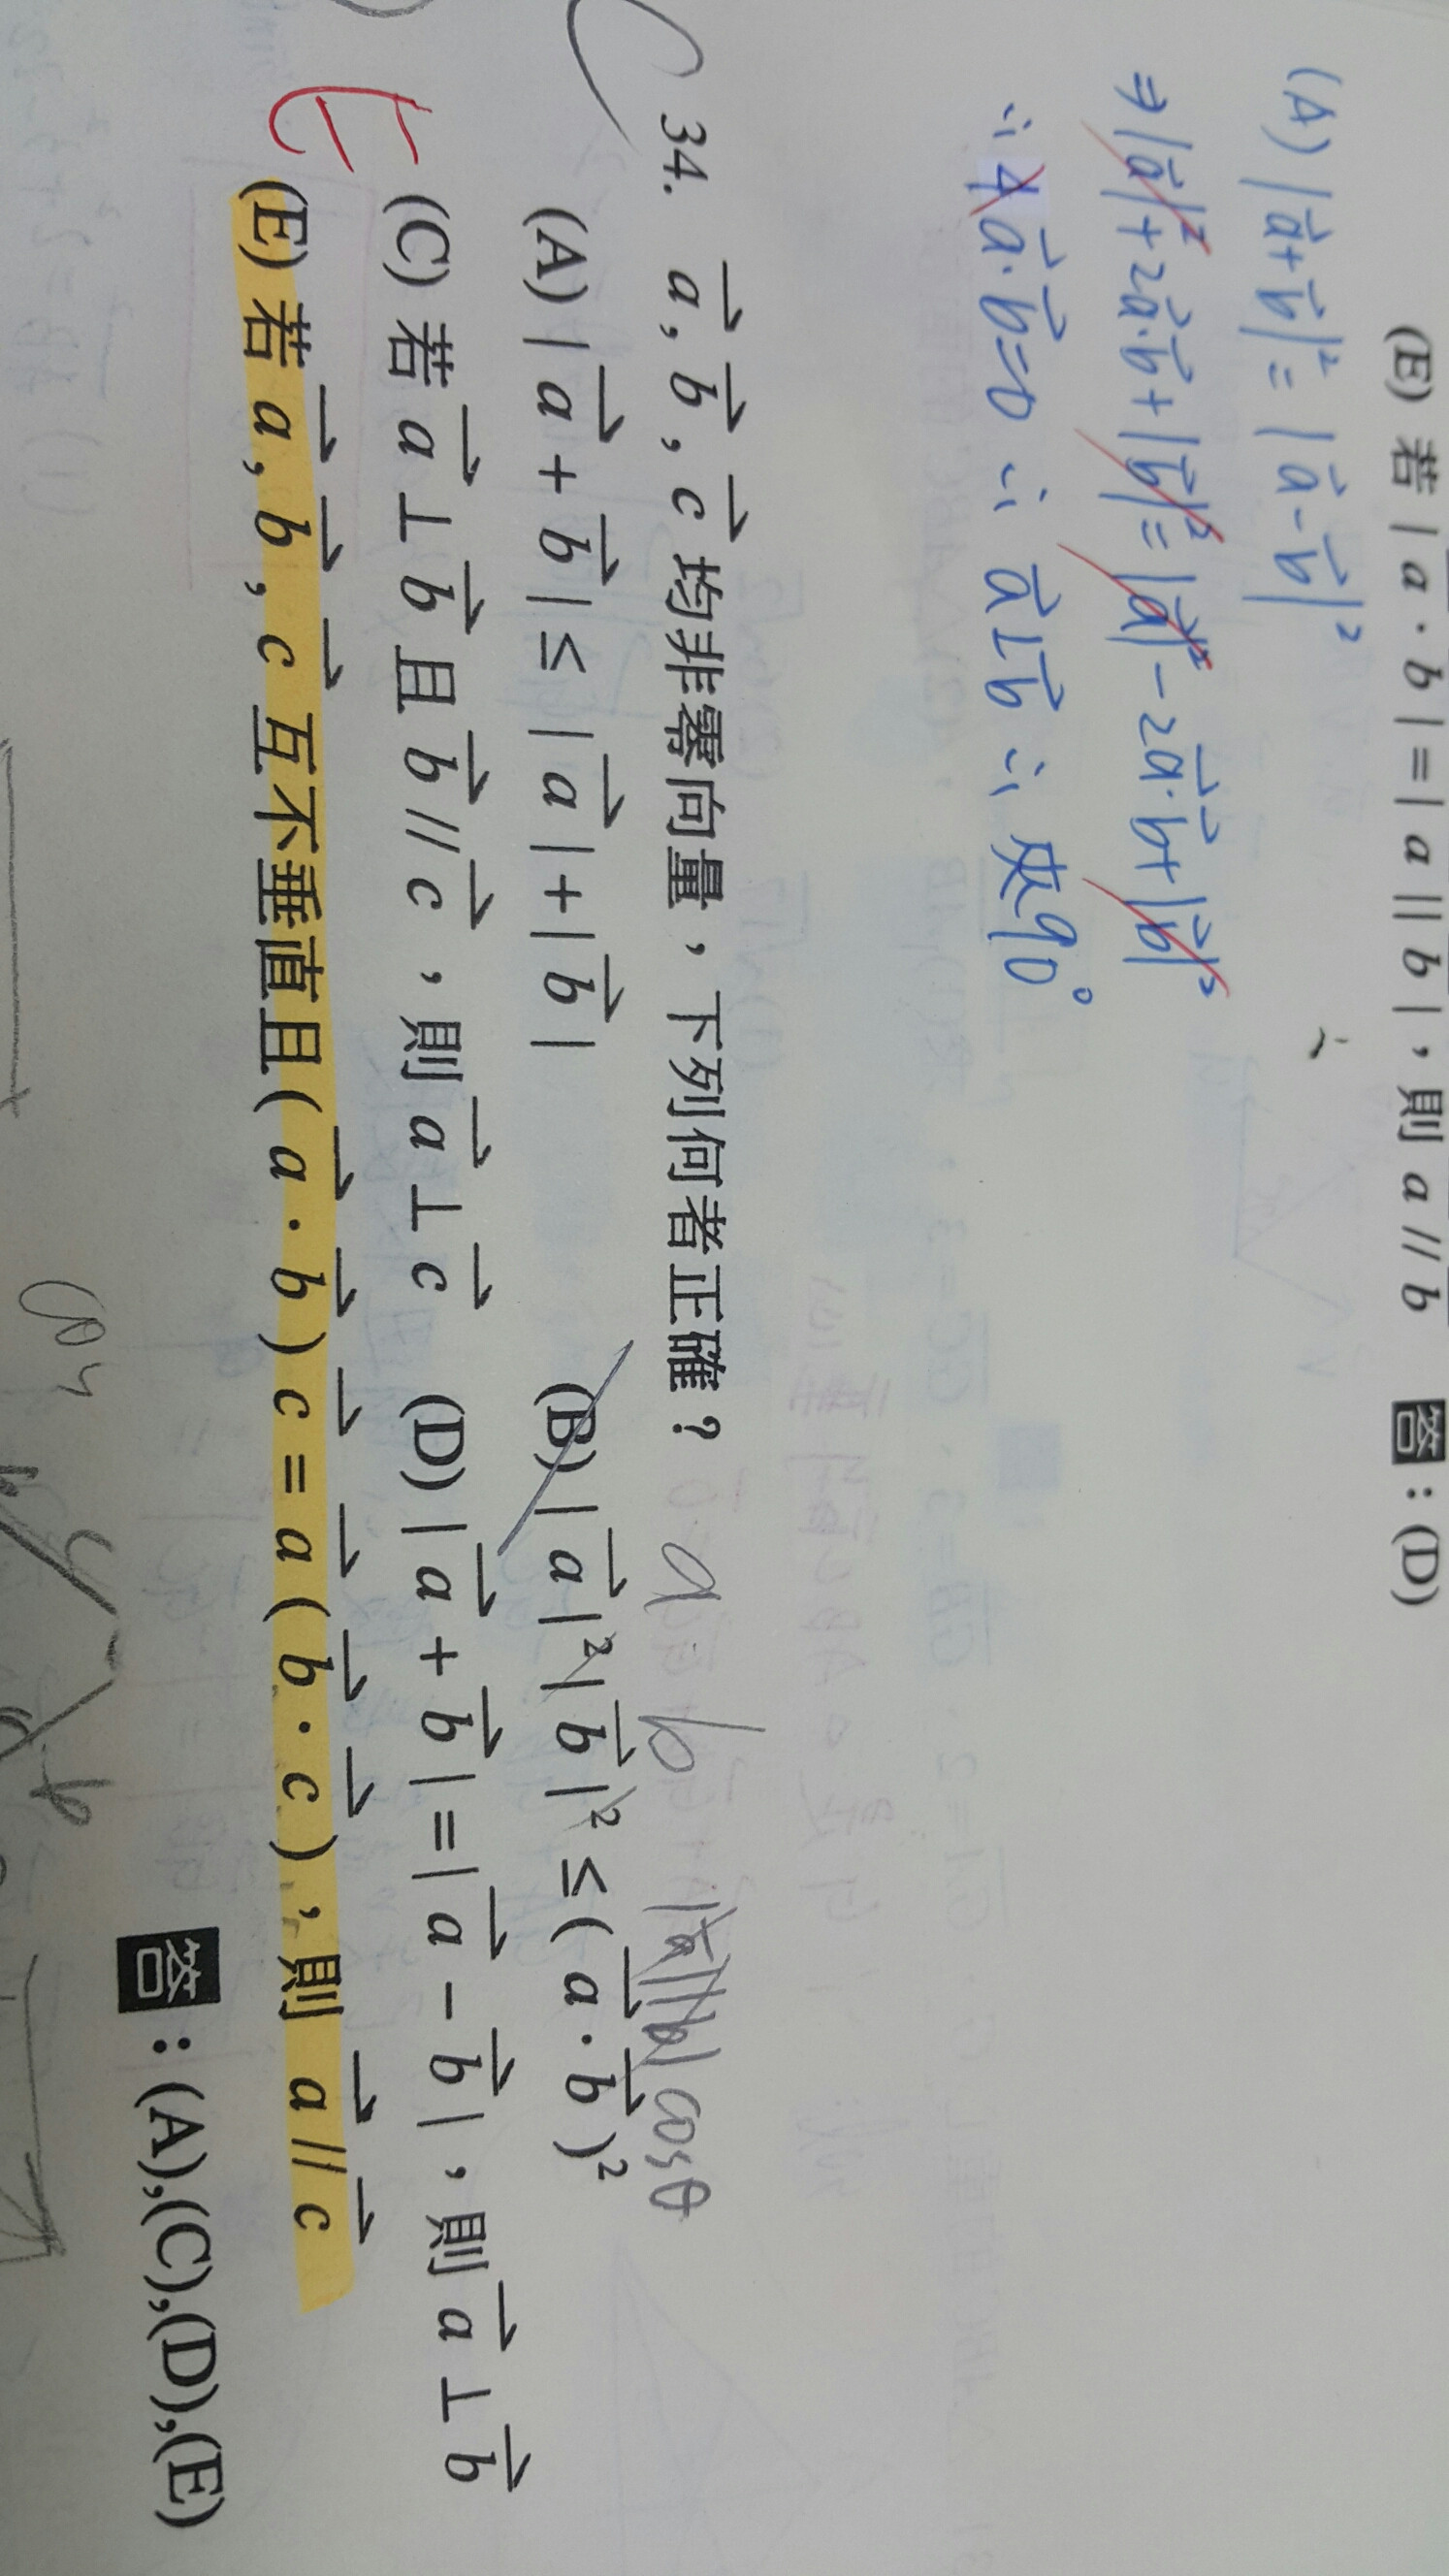 (E) 若 | a · b | = | a || b | , 則 a // b 答 : (D)
(A) |a⃗+b⃗|² = |a⃗-b⃗|²
⇒ |a⃗|²+2a⃗·b⃗+|b⃗|² = |a⃗|²-2a⃗·b⃗+|b⃗|²
∴ 4a⃗·b⃗=0 ∴ a⃗⊥b⃗ ∴ 夾90°
a b |a⃗||b| cosθ
34. a⃗ , b⃗ , c⃗ 均非零向量,下列何者正確?
(A) | a⃗ + b⃗ | ≤ | a⃗ | + | b⃗ | (B) | a⃗ |² | b⃗ |² ≤ ( a⃗ · b⃗ )²
(C) 若 a⃗ ⊥ b⃗ 且 b⃗ // c⃗ ,則 a⃗ ⊥ c⃗ (D) | a⃗ + b⃗ | = | a⃗ - b⃗ | ,則 a⃗ ⊥ b⃗
(E) 若 a⃗ , b⃗ , c⃗ 互不垂直且 ( a⃗ · b⃗ ) c⃗ = a⃗ ( b⃗ · c⃗ ) ,則 a⃗ // c⃗
答 : (A),(C),(D),(E)